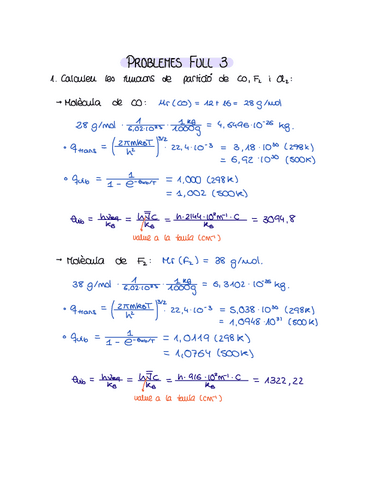 PROBLEMES FULL 3
1. Calculeu les funcions de partició de CO, F₂ i Cl₂:
→ Molècula de CO: Mr (CO) = 12 + 16 = 28 g/mol
28 g/mol · 1/6,02·10²³ · 1 kg/1000g = 4,6496·10⁻²⁶ kg.
• q_trans = (2πmk_BT/h²)^3/2 · 22,4·10⁻³ = 3,18·10³⁰ (298K)
= 6,92·10³⁰ (500K)
• q_vib = 1/1 - e^-θvib/T = 1,000 (298K)
= 1,002 (500K)
θ_vib = hν/k_B = hν̃c/k_B = h·2144·10²m⁻¹·c/k_B = 3094,8
value a la taula (cm⁻¹)
→ Molècula de F₂: Mr (F₂) = 38 g/mol.
38 g/mol · 1/6,02·10²³ · 1 kg/1000g = 6,3102·10⁻²⁶ kg
• q_trans = (2πmk_BT/h²)^3/2 · 22,4·10⁻³ = 5,038·10³⁰ (298K)
= 1,0948·10³¹ (500K)
• q_vib = 1/1 - e^-θvib/T = 1,0119 (298K)
= 1,0764 (500K)
θ_vib = hν/k_B = hν̃c/k_B = h·916·10²m⁻¹·c/k_B = 1322,22
value a la taula (cm⁻¹)